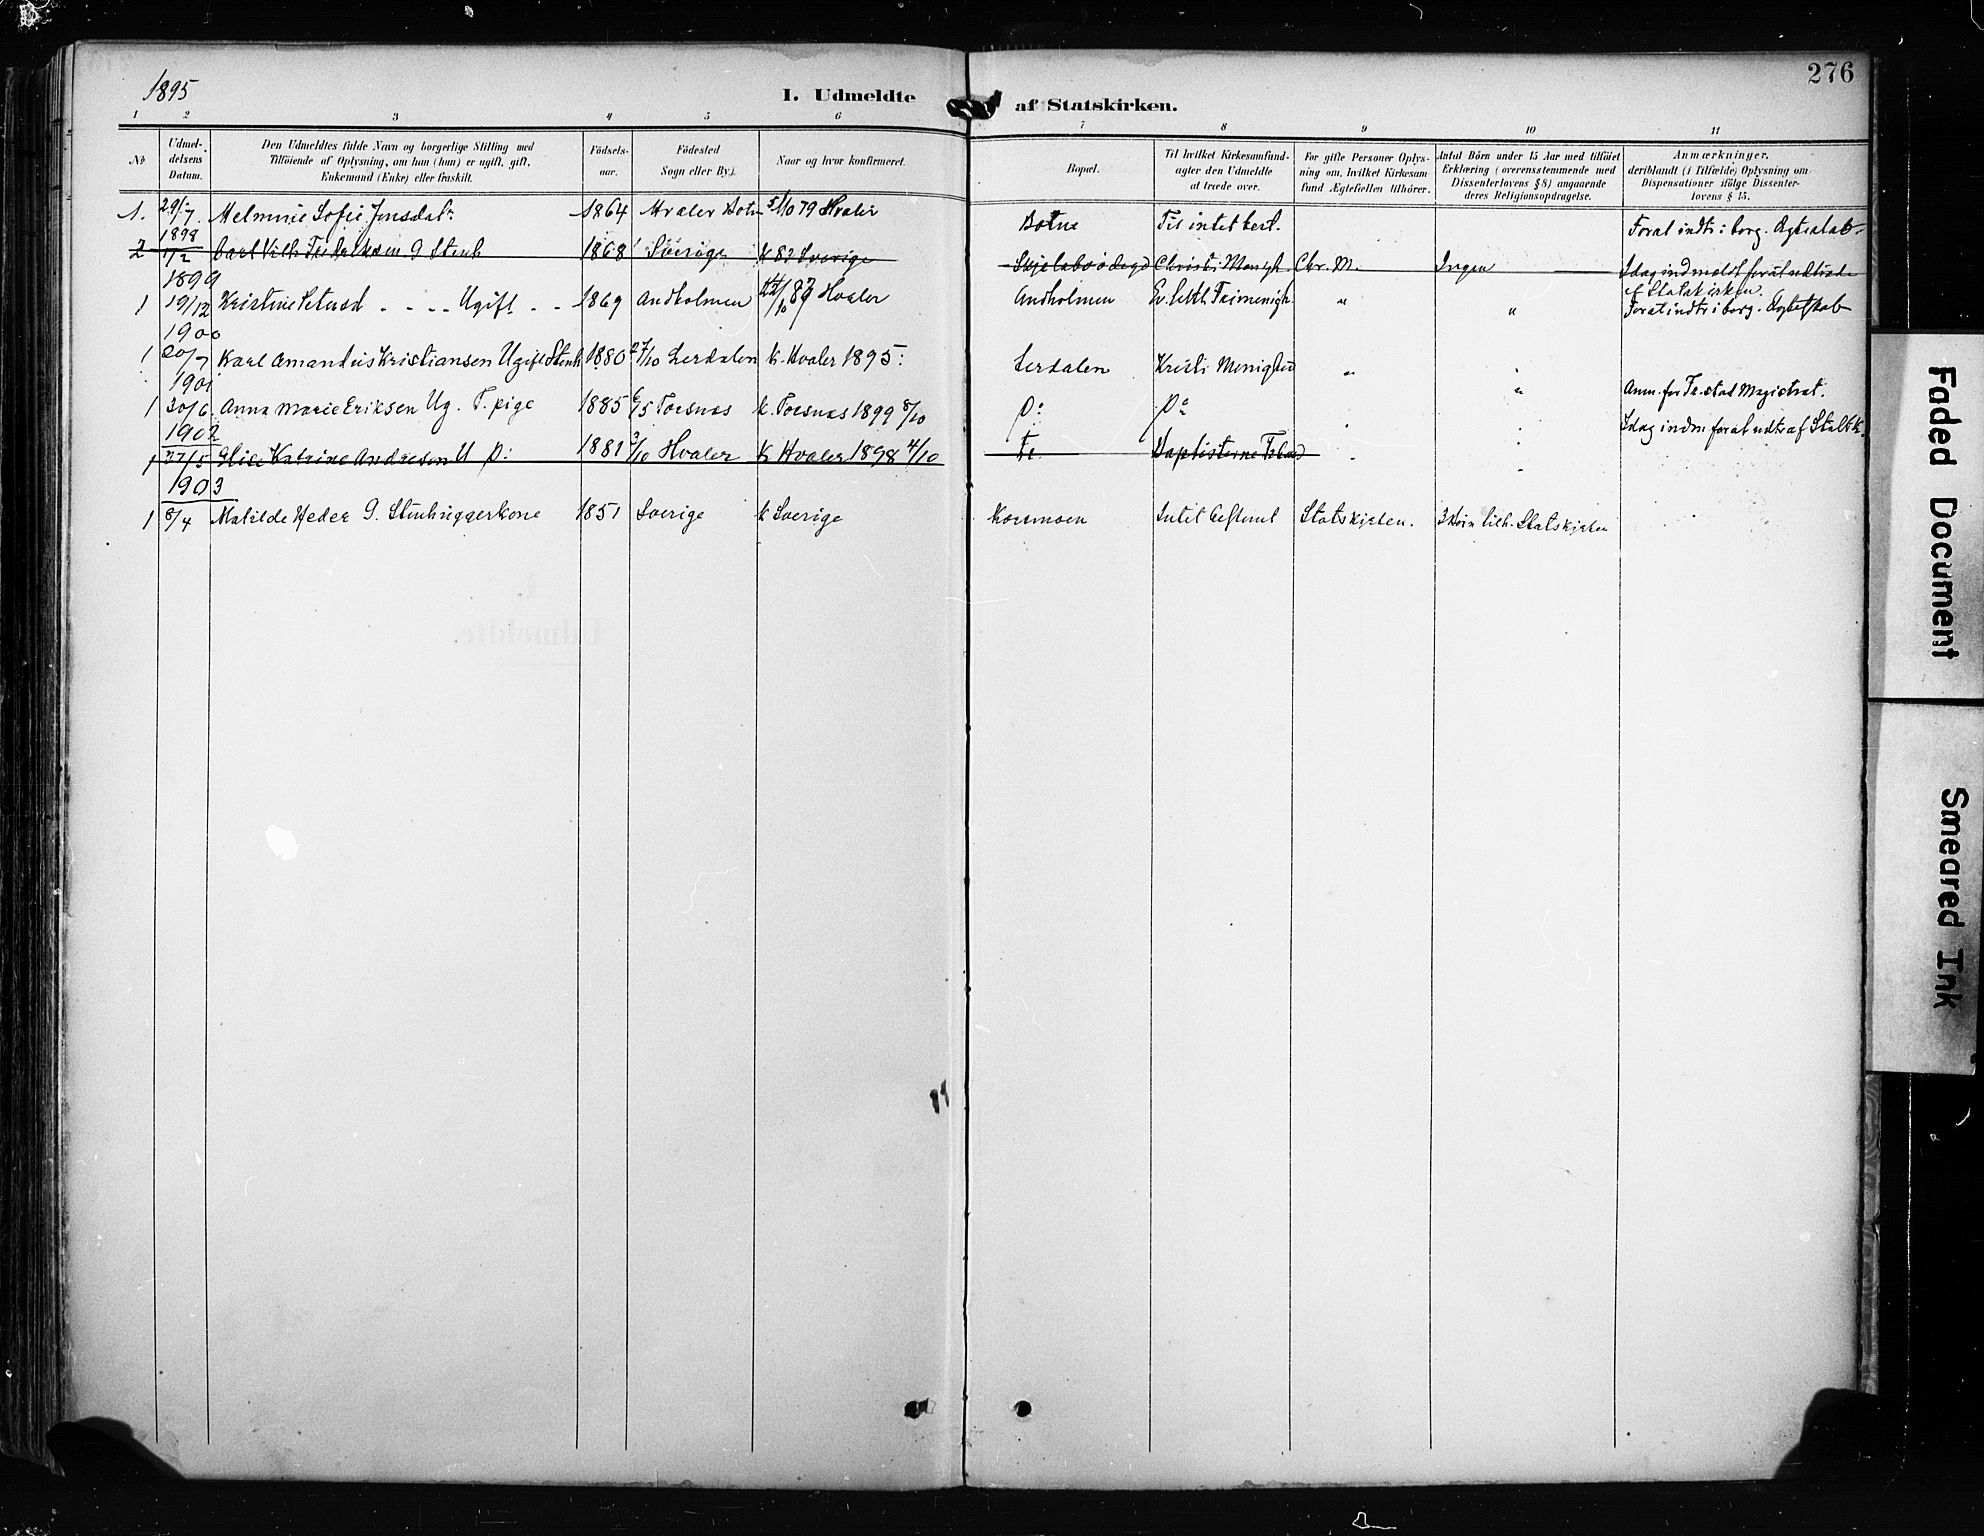 1895
276
I. Udmeldte af Statskirken.
1 2 3 4 5 6 7 8 9 10 11
No
Udmeldelsens Datum.
Den Udmeldtes fulde Navn og borgerlige Stilling med
Tilföiende af Oplysning, om han (hun) er ugift, gift,
Enkemand (Enke) eller fraskilt.
Födselsaar.
Födested
Sogn eller By.)
Naar og hvor konfirmeret.
Bopæl.
Til hvilket Kirkesamfund-
agter den Udmeldte
at træde over.
For gifte Personer Oplys-
ning om, hvilket Kirkesam
fund Ægtefællen tilhörer.
Antal Börn under 15 Aar med tilföiet
Erklæring (overensstemmende med
Dissenterlovens § 8) angaaende
deres Religionsopdragelse.
Anmærkninger,
deriblandt (i Tilfælde) Oplysning om
Dispensationer ifölge Dissenter-
lovens § 15.
1. 29/7. Sofie Jensdatr 1864 Hvaler 5/10 79 Hvaler Til intet best. Forat indtr. i borg. Ægteskab.
1898
2 1/2 Carl Vilh. Fredriksen G Stenh 1868 Sverige K 83 Sverige Christi Menigh. Chr. M. Ingen Idag indmeldt forat udtræde af Statskirken.
1899
1 19/12 Kristine Ugift 1869 Andholmen Hvaler Andholmen Ev. luth Frimenigh. " " Forat indtr i borg. Ægteskab
1900
1 20/7 Karl Amandus Kristiansen Ugift Stenh 1880 Lerdalen K. Hvaler 1895: Lerdalen Kristi Menighed "
1901
1 30/6. Anna Marie Eriksen Ug. T. pige 1885 6/5 Torsnæs K. Torsnæs 1899 8/10 Do Do " Anm. for Fr.stad Magistrat.
1902
1 27/5 Elise Katrine Andresen U Do: 1881 3/10 Hvaler K Hvaler 1898 4/10 Baptisterne Idag indm. forat udtr af Statsk.
1903
1 8/4 Matilde Heder G. Stenhuggerkone 1851 Sverige K Sverige Korsmoen Intet bestemt Statskirken. 3 Börn Statskirken
Faded Document
Smeared Ink